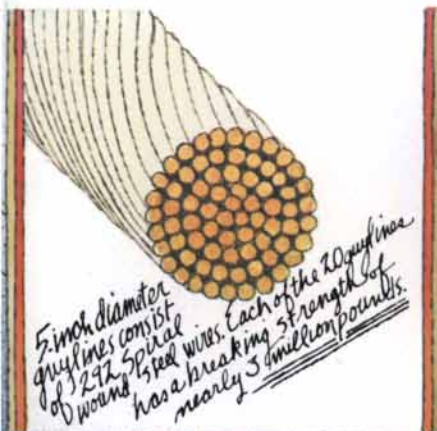 5-inch diameter
guylines consist
of 292 spiral
wound steel wires. Each of the 20 guylines
has a breaking strength of
nearly 3 million pounds.